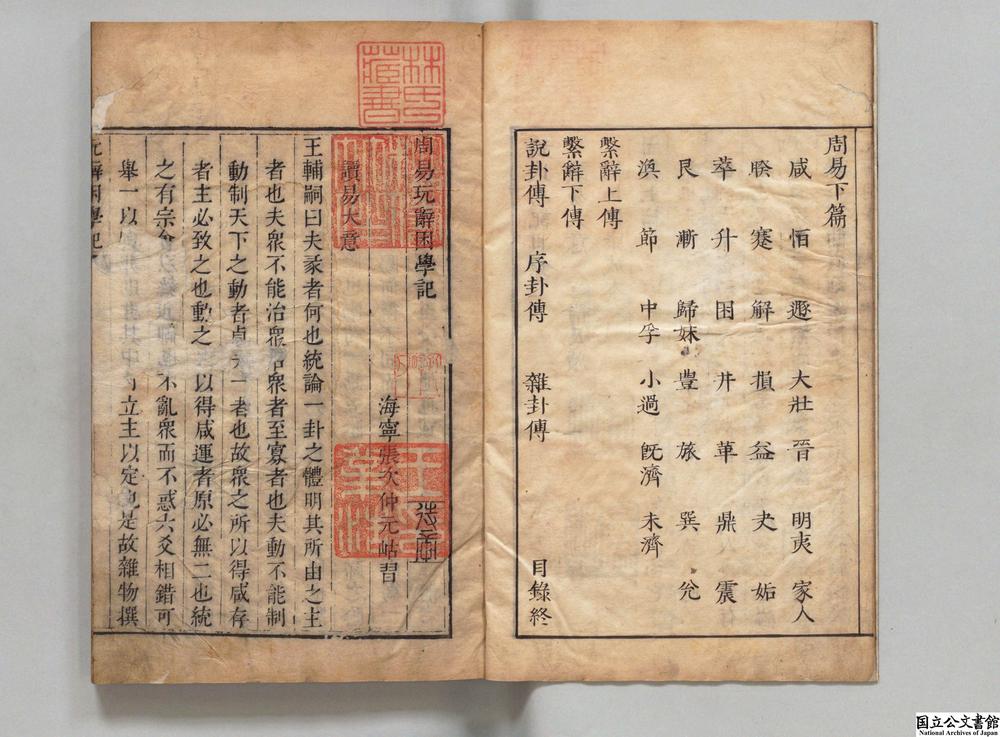 周易下篇
咸 恒 遯 大壯 晉 明夷 家人
睽 蹇 解 損 益 夬 姤
萃 升 困 井 革 鼎 震
艮 漸 歸妹 豐 旅 巽 兌
渙 節 中孚 小過 旣濟 未濟
繫辭上傳
繫辭下傳
說卦傳 序卦傳 雜卦傳 目錄終
周易玩辭困學記
海寧張次仲元岵
讀易大意
王輔嗣曰夫彖者何也統論一卦之體明其所由之主
者也夫衆不能治衆治衆者至寡者也夫動不能制
動制天下之動者貞夫一者也故衆之所以得咸存
者主必致之也動之所以得咸運者原必無二也統
之有宗會之 不亂衆而不惑六爻相錯可
舉一以 立主以定也是故雜物撰
林氏藏書
国立公文書館
National Archives of Japan